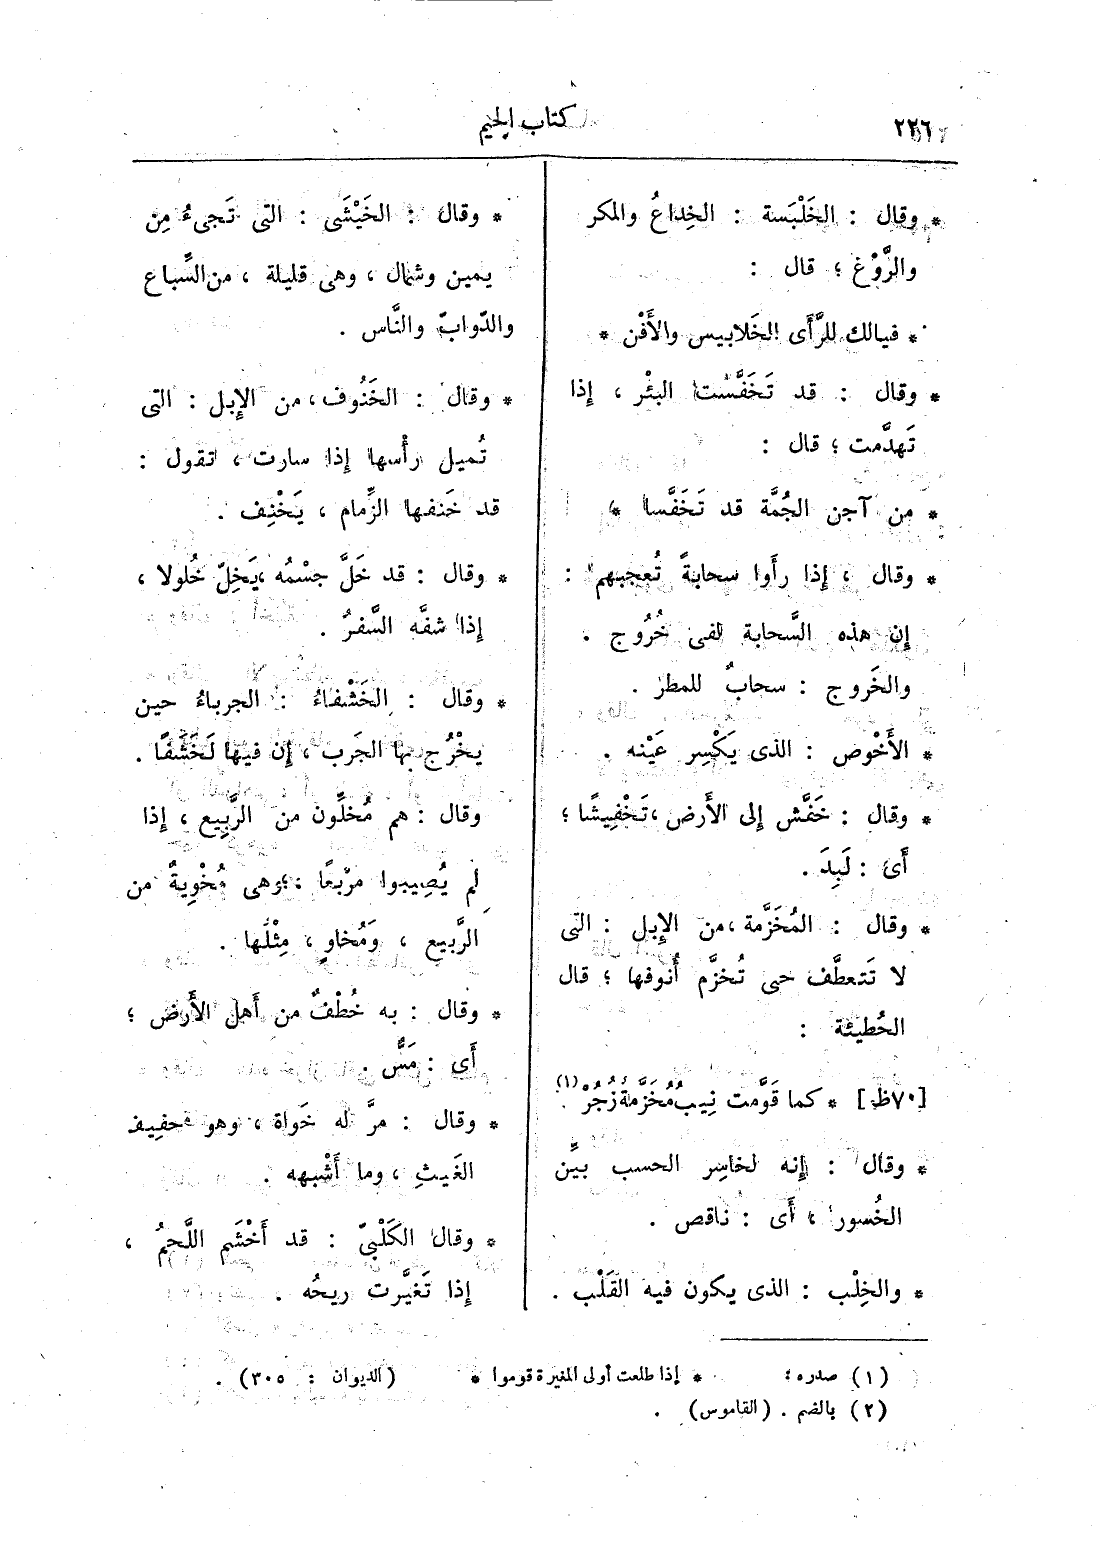 ٢٢٦
كتاب الجيم
* وقال : الخَلْبَسة : الخِداعُ والمكر
والرَّوْغ ؛ قال :
* فيالك للرَّأى الخَلابيس والأَفْن *
* وقال : قد تَخَفَّست البئْر ، إذا
تَهدَّمت ؛ قال :
* من آجن الجُمَّة قد تَخَفَّسا *
* وقال ، إذا رأَوا سحابةً تُعجبهم :
إن هذه السَّحابة لفى خُرُوج .
والخَروج : سحابٌ للمطر .
* الأَخْوص : الذى يَكْسِر عَيْنه .
* وقال : خَفَّش إلى الأَرض ، تَخْفِيشًا ؛
أَى : لَبِدَ .
* وقال : المُخَزَّمة ، من الإِبل : التى
لا تَتعطَّف حتى تُخزَّم أُنوفها ؛ قال
الحُطيئة :
[٧٠ظ] * كما قَوَّمت نِيبٌ مُخَزَّمَةٌ زُجُرْ (١) .
* وقال : إِنه لخاسِر الحسب بيِّن
الخُسور ، أَى : ناقص .
* والخِلْب : الذى يكون فيه القَلْب .
* وقال : الخَيْشَى : التى تَجىءُ مِن
يمين وشمال ، وهى قليلة ، من السِّباع
والدّوابّ والنَّاس .
* وقال : الخَنُوف ، من الإِبل : التى
تُميل رأْسها إذا سارت ، تقول :
قد خَنفها الزِّمام ، يَخْنِف .
* وقال : قد خَلَّ جسْمُه ، يَخِلّ خُلولا ،
إذا شفَّه السَّفرُ .
* وقال : الخَشْفاءُ : الجرباءُ حين
يخْرُج بها الجَرب ، إن فيها لَخَشَفًا .
وقال : هم مُخلُّون من الرَّبِيع ، إذا
لم يُصِيبوا مرْبعًا ، وهى مُخْوِيةٌ من
الرَّبيع ، وَمُخاوٍ ، مِثْلُها .
* وقال : به خُطْفٌ من أَهل الأَرض ؛
أَى : مَسٌّ .
* وقال : مرَّ له خَواة ، وهو حفيف
الغَيثِ ، وما أَشْبهه .
* وقال الكَلْبىّ : قد أَخْشَم اللَّحمُ ،
إذا تَغيَّرت ريحُه .
(١) صدره : * إذا طلعت أولى المغيرة قوموا * (الديوان : ٣٠٥) .
(٢) بالضم . (القاموس) .